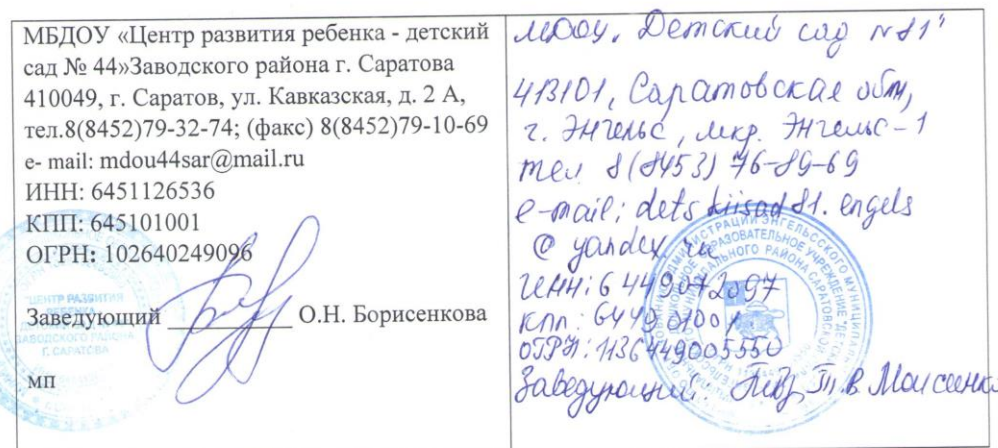 МБДОУ «Центр развития ребенка - детский
сад № 44»Заводского района г. Саратова
410049, г. Саратов, ул. Кавказская, д. 2 А,
тел.8(8452)79-32-74; (факс) 8(8452)79-10-69
e- mail: mdou44sar@mail.ru
ИНН: 6451126536
КПП: 645101001
ОГРН: 102640249096
"ЦЕНТР РАЗВИТИЯ
РЕБЕНКА
Заведующий __________ О.Н. Борисенкова
ЗАВОДСКОГО РАЙОНА
Г. САРАТОВА
мп
МДОУ "Детский сад №81"
413101, Саратовская обл,
г. Энгельс, мкр. Энгельс-1
тел 8(8453) 76-89-69
e-mail: detskiisad81.engels
@ yandex.ru
ИНН: 6449072097
КПП: 644901001
ОГРН: 1136449005550
Заведующий: Т.В. Моисеенко